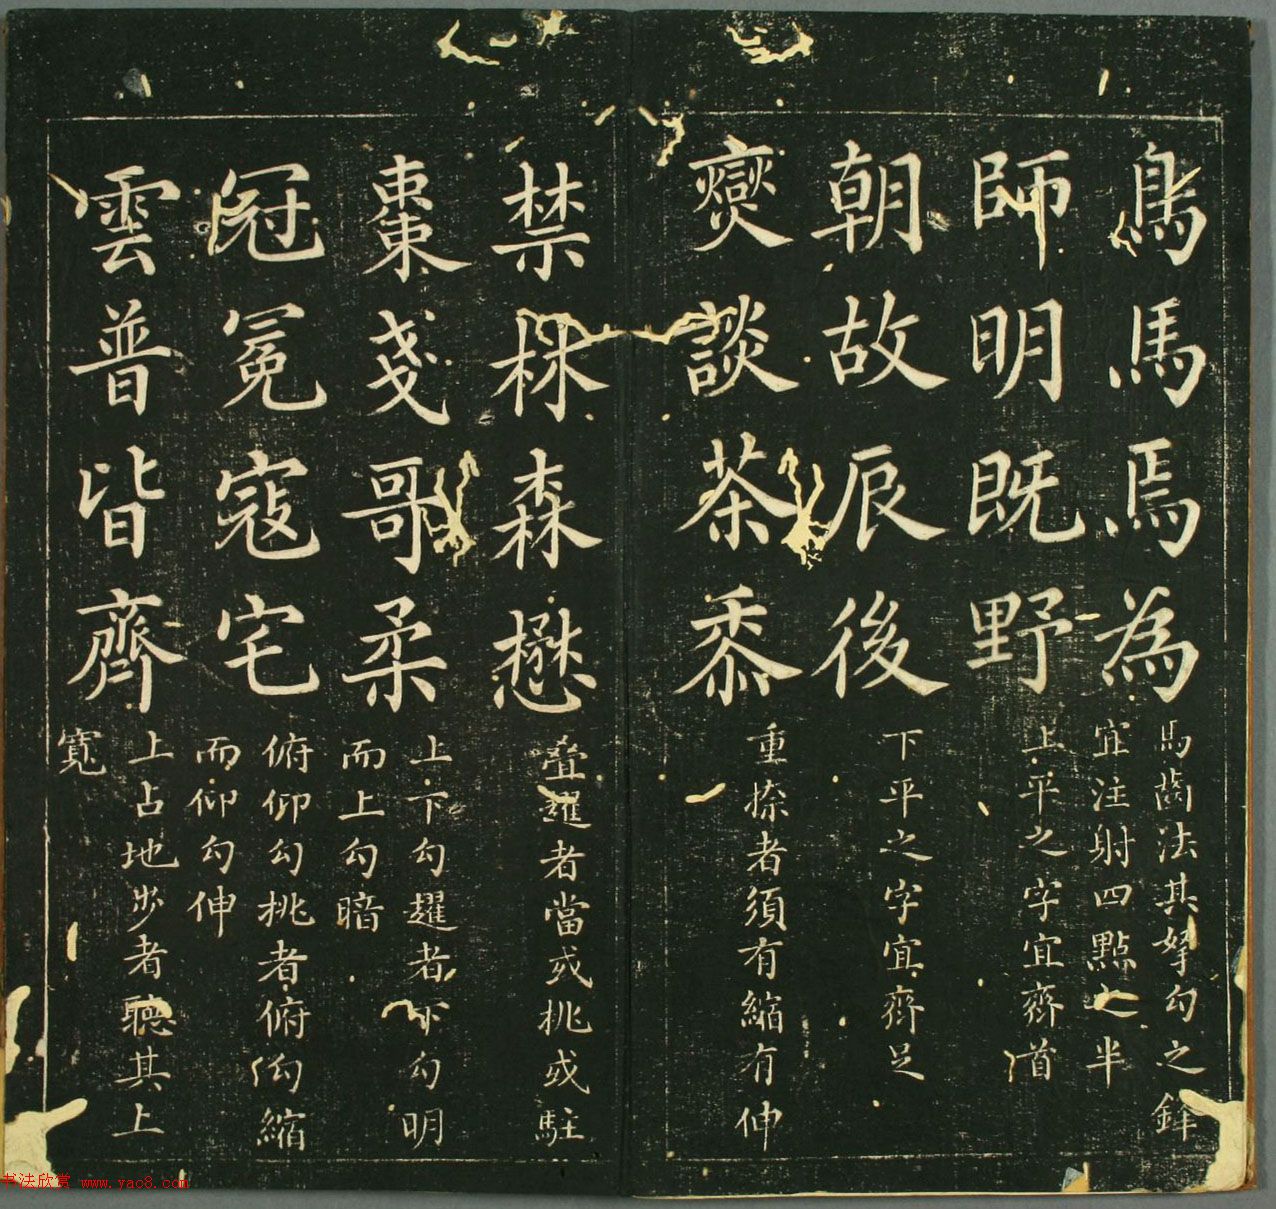 鳥馬焉為
馬齒法其拏勾之鋒
宜注射四點之半
師明既野
上平之字宜齊首
朝故辰後
下平之字宜齊足
爕談茶黍
重捺者須有縮有伸
禁森懋
疊趯者當或挑或駐
棗戔哥柔
上下勾趯者下勾明
而上勾暗
冠冕寇宅
俯仰勾挑者俯勾縮
而仰勾伸
雲普皆齊
上占地步者聽其上
寬
书法欣赏 www.yac8.com